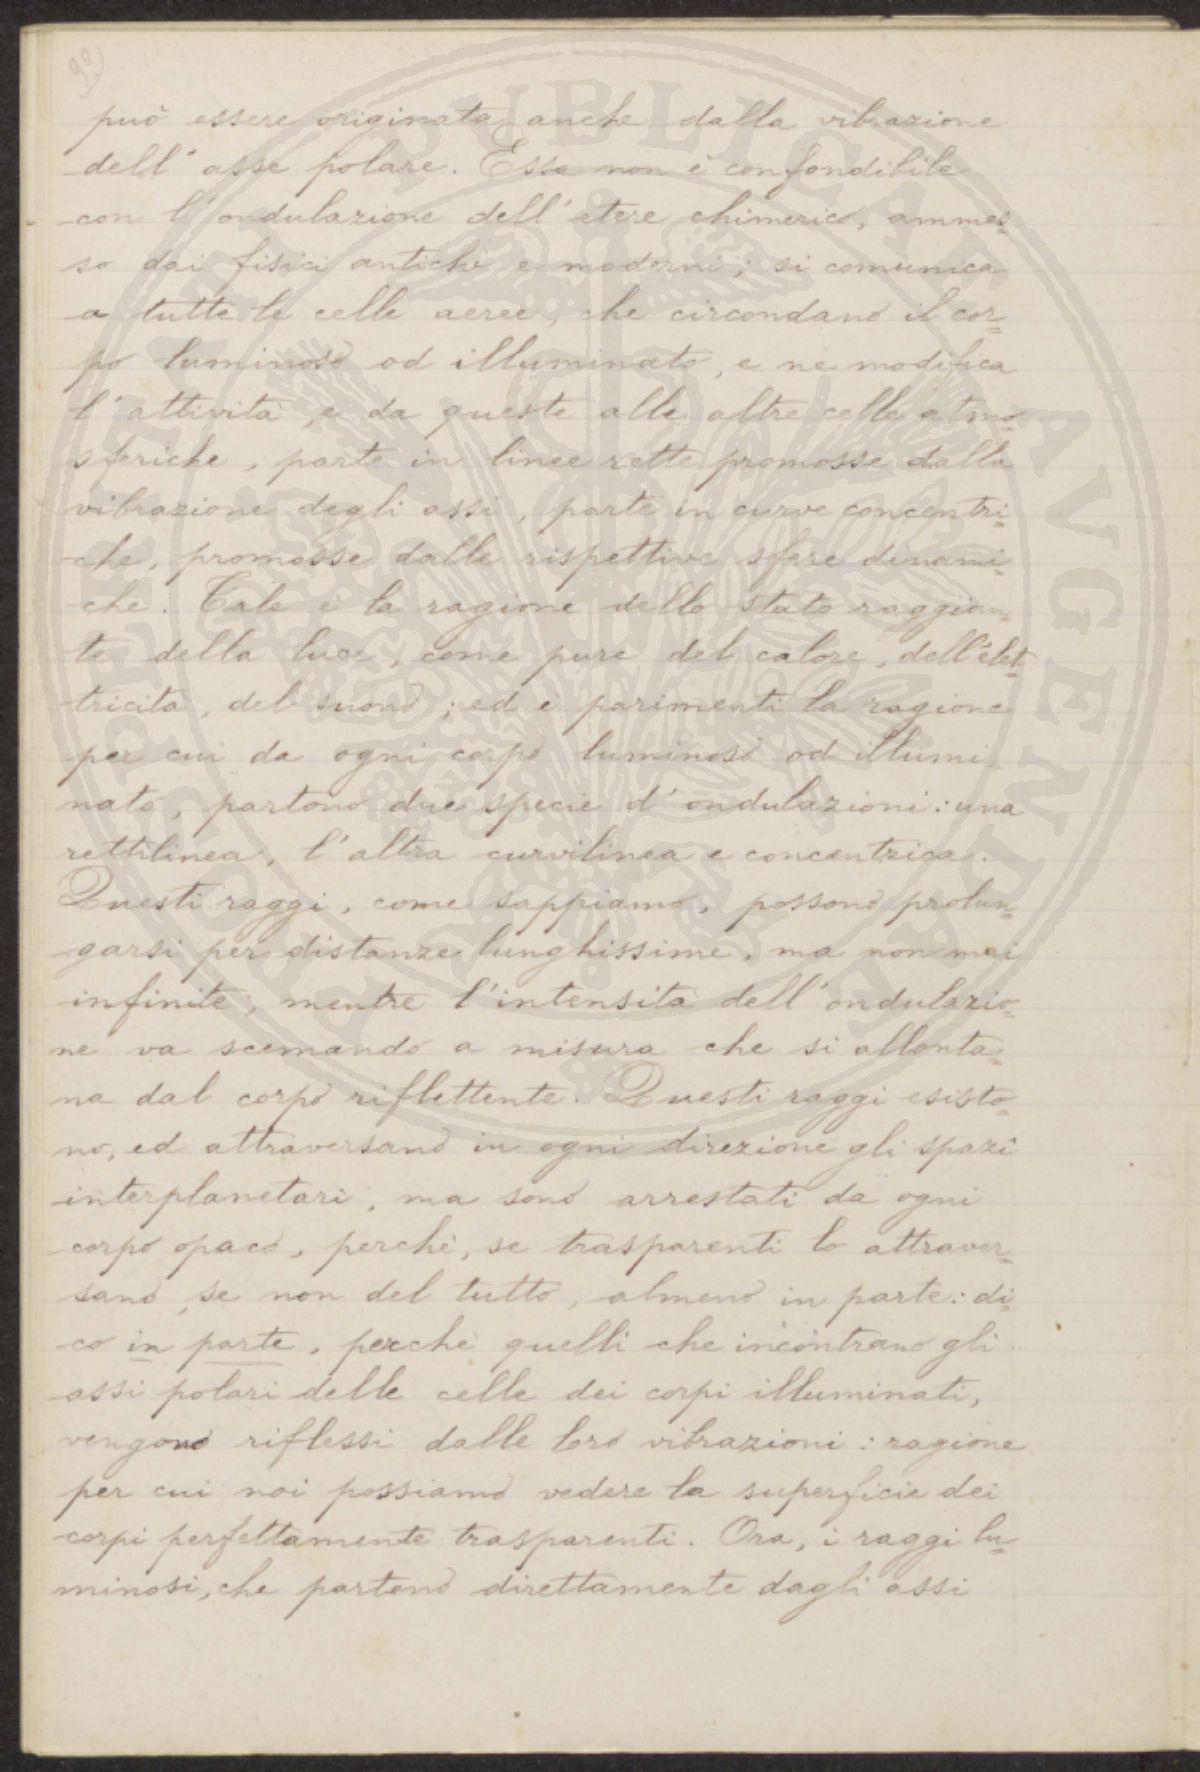 può essere originata anche dalla vibrazione
dell'asse polare. Essa non è confondibile
con l'ondulazione dell'etere chimerico, ammes=
so dai fisici antichi e moderni; si comunica
a tutte le celle aeree, che circondano il cor=
po luminoso od illuminato, e ne modifica
l'attività, e da queste alle altre celle atmo=
sferiche, parte in linee rette promosse dalla
vibrazione degli assi, parte in curve concentri=
che, promosse dalle rispettive sfere dinami=
che. Tale è la ragione dello stato raggian=
te della luce, come pure del calore, dell'elet=
tricità, del suono; ed è parimenti la ragione
per cui da ogni corpo luminoso od illumi=
nato, partono due specie d'ondulazioni: una
rettilinea, l'altra curvilinea e concentrica.
Questi raggi, come sappiamo, possono prolun=
garsi per distanze lunghissime, ma non mai
infinite; mentre l'intensità dell'ondulazio=
ne va scemando a misura che si allonta=
na dal corpo riflettente. Questi raggi esisto=
no, ed attraversano in ogni direzione gli spazi
interplanetari, ma sono arrestati da ogni
corpo opaco, perchè, se trasparenti lo attraver=
sano, se non del tutto, almeno in parte: di=
co in parte, perchè quelli che incontrano gli
assi polari delle celle dei corpi illuminati,
vengono riflessi dalle loro vibrazioni: ragione
per cui noi possiamo vedere la superficie dei
corpi perfettamente trasparenti. Ora, i raggi lu=
minosi, che partono direttamente dagli assi